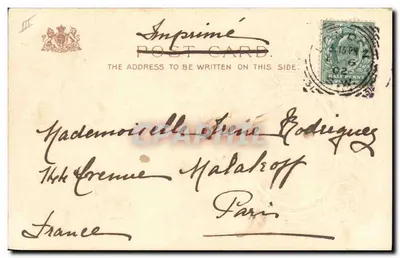 Imprimé
POST CARD.
THE ADDRESS TO BE WRITTEN ON THIS SIDE.
HALF PENNY
Mademoiselle Irène Rodriguez
Avenue Malakoff
Paris
France